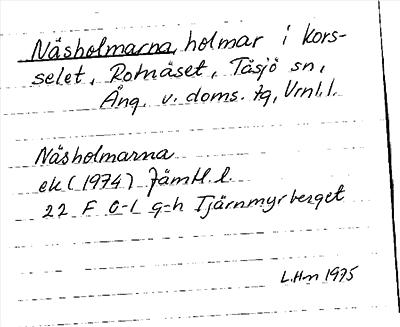 Näsholmarna, holmar i Kors-
selet, Rotnäset, Täsjö sn,
Ång. v. doms. tg, Vrnl.l.
Näsholmarna
ek (1974) Jämtl. l.
22 F 0-1 g-h Tjärnmyrberget
L.Hm 1975